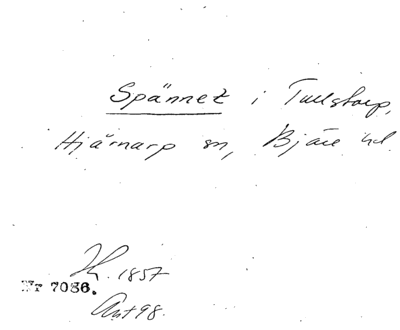 Spännet i Tullstorp,
Hjärnarp sn, Bjäre hd.
H. 1857
Nr 7086.
Ant 98.